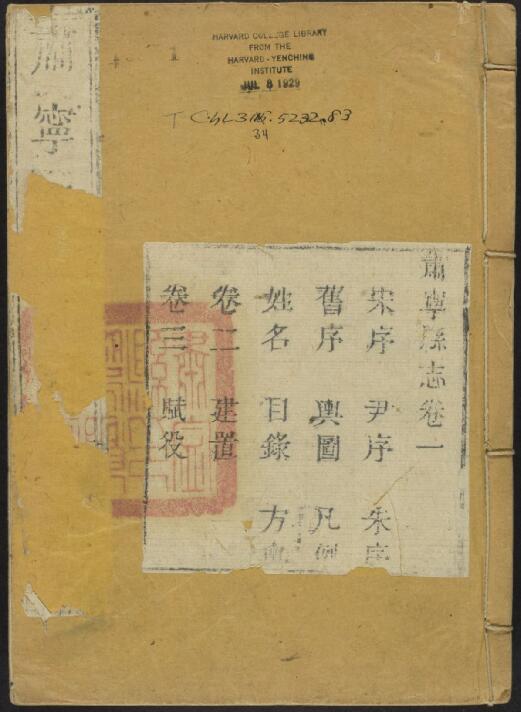 HARVARD COLLEGE LIBRARY
FROM THE
HARVARD-YENCHING
INSTITUTE
JUL 8 1929
肅寧
肅寧縣志卷一
宋序 尹序 朱序
舊序 輿圖 凡例
姓名 目錄 方輿
卷二 建置
卷三 賦役